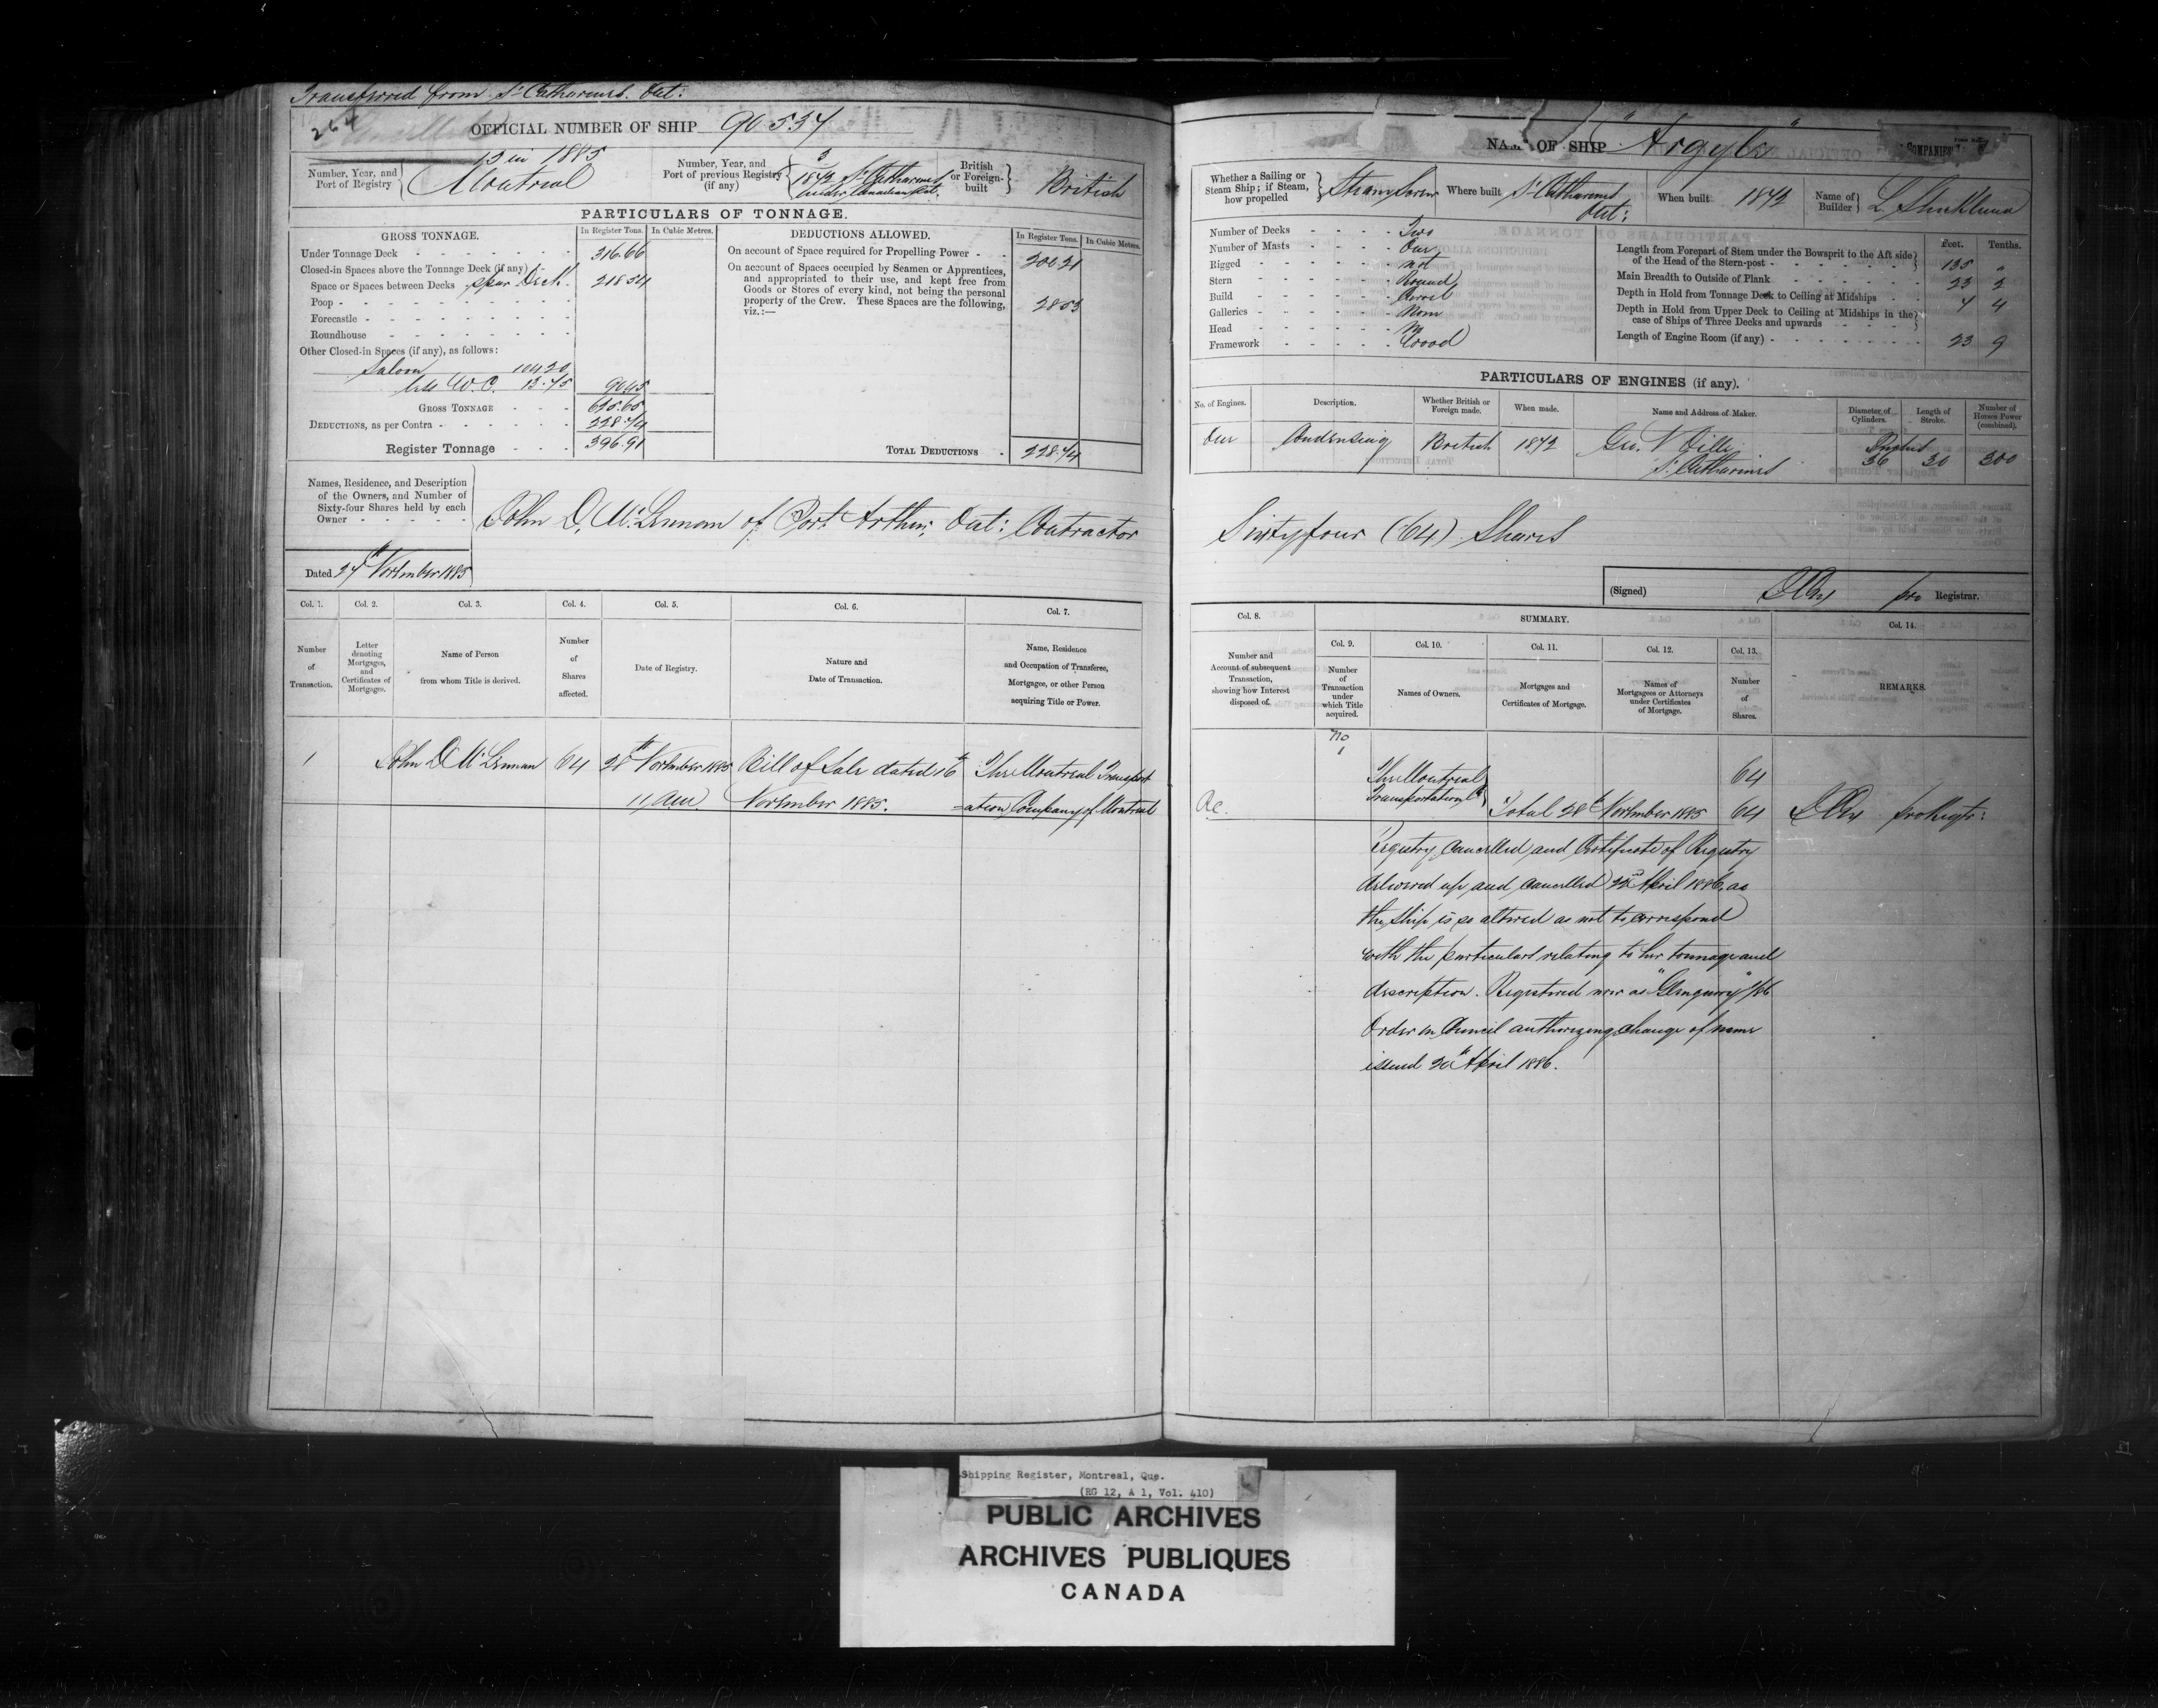 Transferred from St Catharines. Ont:
264
OFFICIAL NUMBER OF SHIP 90.557
NAME OF SHIP "Argyle"
COMPANIES
Number, Year, and Port of Registry
13 in 1885
Montreal
Number, Year, and Port of previous Registry (if any)
3
1872 St Catharines
under Canadian Act.
British or Foreign-built
British
PARTICULARS OF TONNAGE.
GROSS TONNAGE.
In Register Tons.
In Cubic Metres.
Under Tonnage Deck 316.66
Closed-in Spaces above the Tonnage Deck (if any)
Space or Spaces between Decks Spar Deck. 218.54
Poop
Forecastle
Roundhouse
Other Closed-in Spaces (if any), as follows:
Saloon
W.C.
GROSS TONNAGE 625.65
DEDUCTIONS, as per Contra 228.74
Register Tonnage 396.91
DEDUCTIONS ALLOWED.
In Register Tons.
In Cubic Metres.
On account of Space required for Propelling Power 200.21
On account of Spaces occupied by Seamen or Apprentices, and appropriated to their use, and kept free from Goods or Stores of every kind, not being the personal property of the Crew. These Spaces are the following, viz.:— 28.53
TOTAL DEDUCTIONS 228.74
Names, Residence, and Description of the Owners, and Number of Sixty-four Shares held by each Owner
John D. McLennan of Port Arthur, Ont: Contractor
Dated 27th November 1885
Whether a Sailing or Steam Ship; if Steam, how propelled
Steam Screw
Where built St Catharines Ont:
When built 1872
Name of Builder L. Shickluna
Number of Decks Two
Number of Masts One
Rigged not
Stern Round
Build Carvel
Galleries None
Head
Framework Wood
Feet. Tenths.
Length from Forepart of Stem under the Bowsprit to the Aft side of the Head of the Stern-post 135 "
Main Breadth to Outside of Plank 23 2
Depth in Hold from Tonnage Deck to Ceiling at Midships 7 4
Depth in Hold from Upper Deck to Ceiling at Midships in the case of Ships of Three Decks and upwards
Length of Engine Room (if any) 23 9
PARTICULARS OF ENGINES (if any).
No. of Engines. Description. Whether British or Foreign made. When made. Name and Address of Maker. Diameter of Cylinders. Length of Stroke. Number of Horses Power (combined).
One Condensing British 1872 Geo. N Oille St Catharines 36 30 200
Sixtyfour (64) Shares
(Signed) pro Registrar.
Col. 1. Col. 2. Col. 3. Col. 4. Col. 5. Col. 6. Col. 7.
Number of Transaction.
Letter denoting Mortgages, and Certificates of Mortgages.
Name of Person from whom Title is derived.
Number of Shares affected.
Date of Registry.
Nature and Date of Transaction.
Name, Residence and Occupation of Transferee, Mortgagee, or other Person acquiring Title or Power.
1 John D McLennan 64 28th November 1885 Bill of Sale dated 16th The Montreal Transport
11 am November 1885. =ation Company of Montreal
Col. 8. SUMMARY. Col. 14.
Number and Account of subsequent Transaction, showing how Interest disposed of.
Col. 9. Col. 10. Col. 11. Col. 12. Col. 13.
Number of Transaction under which Title acquired.
Names of Owners.
Mortgages and Certificates of Mortgage.
Names of Mortgagees or Attorneys under Certificates of Mortgage.
Number of Shares.
REMARKS.
No
1 The Montreal 64
R.C. Transportation Co Total 28th November 1885 64
Registry cancelled and Certificate of Registry
delivered up and cancelled April 1886, as
the ship is so altered as not to correspond
with the particulars relating to her tonnage and
description. Registered now as "Glengarry" /86
Order in Council authorizing change of name
issued 20th April 1886.
Shipping Register, Montreal, Que.
(RG 12, A 1, Vol. 410)
PUBLIC ARCHIVES
ARCHIVES PUBLIQUES
CANADA